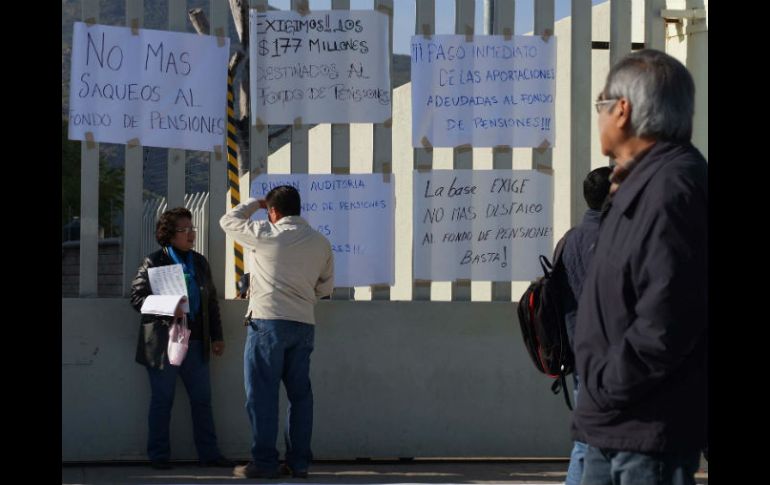 NO MAS
SAQUEOS AL
FONDO DE PENSIONES
EXIGIMOS!! LOS
$177 MILLONES
DESTINADOS AL
FONDO DE PENSIONES
¡¡¡ PAGO INMEDIATO
DE LAS APORTACIONES
ADEUDADAS AL FONDO
DE PENSIONES!!!
AUDITORIA
FONDO DE PENSIONES
La base EXIGE
NO MAS DESFALCO
AL FONDO DE PENSIONES
BASTA!